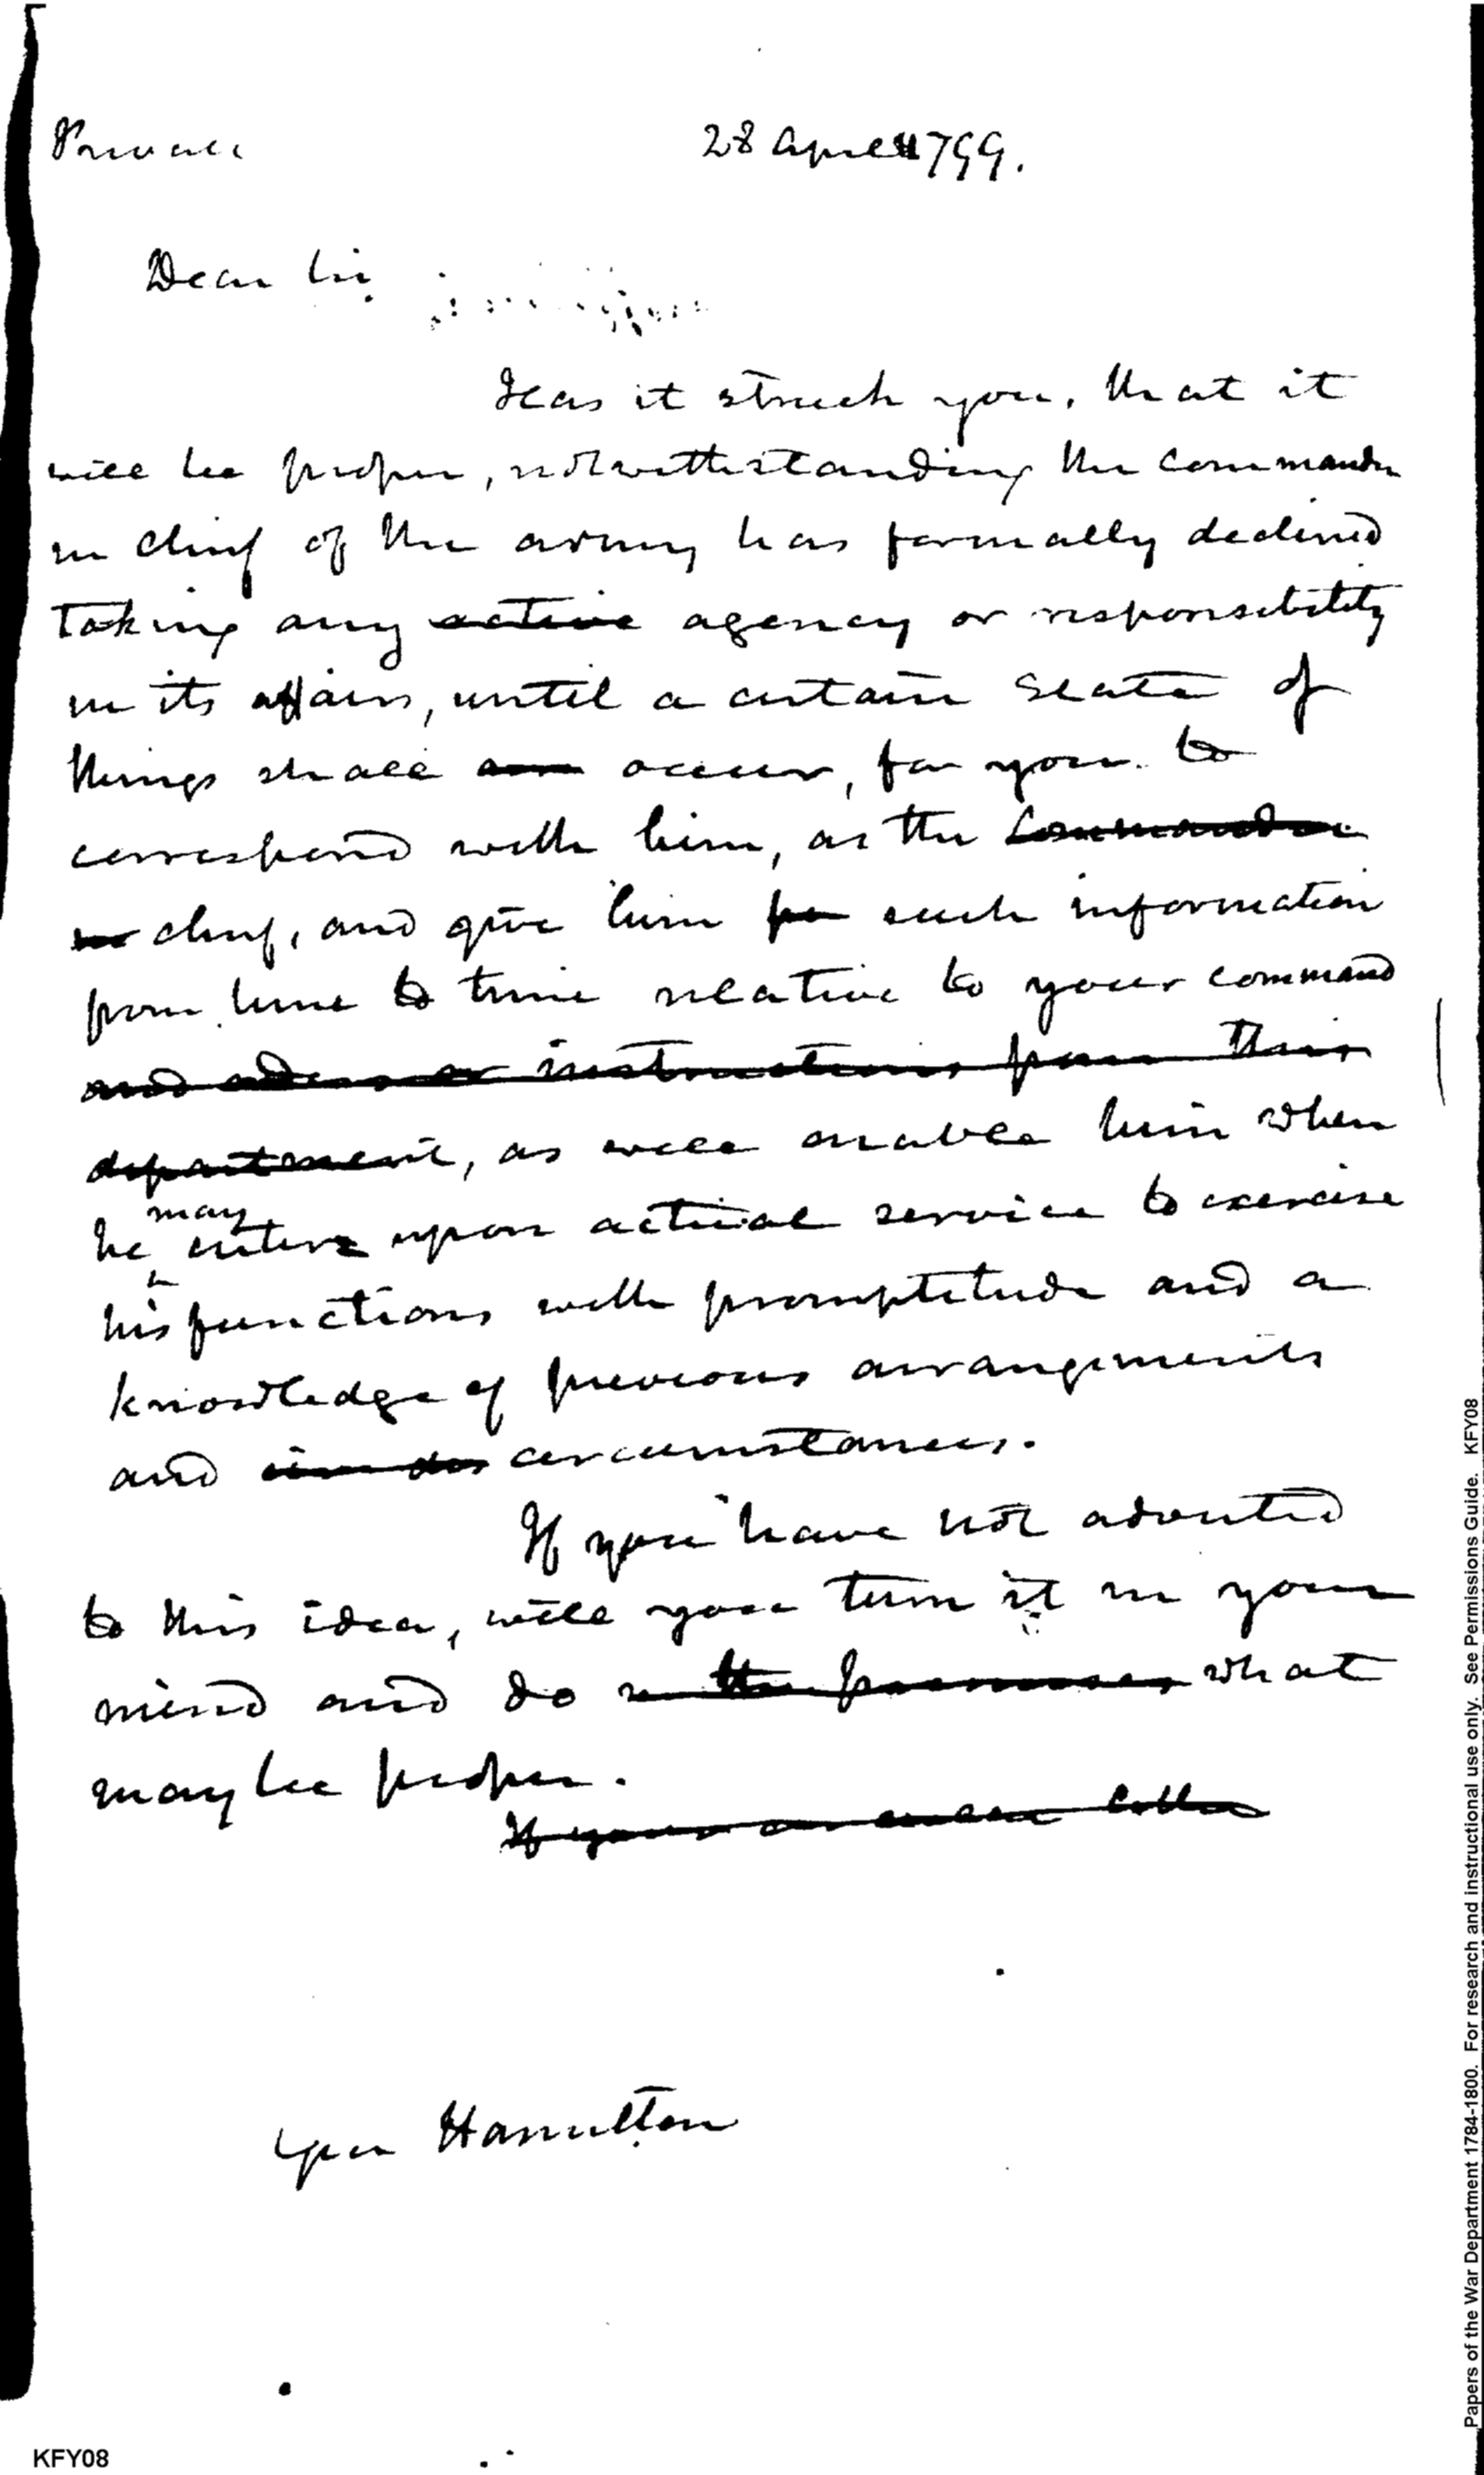 Private
28 April 1799.
Dear Sir
Has it struck you, that it
will be proper, notwithstanding the commander
in chief of the army has formally declined
taking any active agency or responsibility
in its affairs, until a certain state of
things shall occur, for you to
correspond with him, as the commander
in chief, and give him such information
from time to time relative to your command
and orders or instructions from this
department, as will enable him when
may
he enters upon actual service to exercise
his functions with promptitude and a
knowledge of previous arrangements
and circumstances.
If you have not adverted
to this idea, will you turn it in your
mind and do in the premises what
may be proper.
If you
Gen Hamilton
KFY08
Papers of the War Department 1784-1800. For research and instructional use only. See Permissions Guide. KFY08